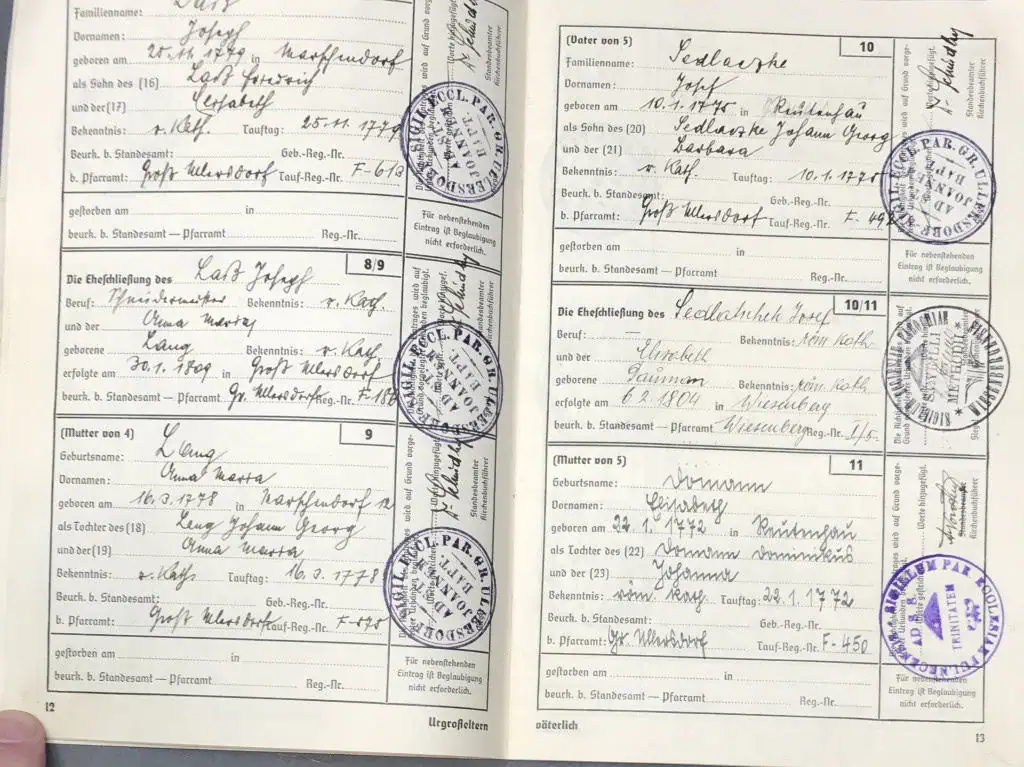 Familienname: Laß
Vornamen: Joseph
geboren am 25.11.1779 in Marschendorf
als Sohn des (16) Laß Friedrich
und der (17) Elisabeth
Bekenntnis: r. Kath. Tauftag: 25.11.1779
Beurk. b. Standesamt: Geb.-Reg.-Nr.
b. Pfarramt: Groß Ullersdorf Tauf-Reg.-Nr. F-613
gestorben am in
beurk. b. Standesamt — Pfarramt Reg.-Nr.
Für nebenstehenden
Eintrag ist Beglaubigung
nicht erforderlich.
8/9
Die Eheschließung des Laß Joseph
Beruf: Schneidermeister Bekenntnis: r. Kath.
und der Anna Maria
geborene Lang Bekenntnis: r. Kath.
erfolgte am 30.1.1809 in Groß Ullersdorf
beurk. b. Standesamt — Pfarramt Gr. Ullersdorf Reg.-Nr.
(Mutter von 4) 9
Geburtsname: Lang
Vornamen: Anna Maria
geboren am 16.3.1778 in Marschendorf 12
als Tochter des (18) Lang Johann Georg
und der (19) Anna Maria
Bekenntnis: r. Kath. Tauftag: 16.3.1778
Beurk. b. Standesamt: Geb.-Reg.-Nr.
b. Pfarramt: Groß Ullersdorf Tauf-Reg.-Nr.
gestorben am in
beurk. b. Standesamt — Pfarramt Reg.-Nr.
Für nebenstehenden
Eintrag ist Beglaubigung
nicht erforderlich.
12
Urgroßeltern
(Vater von 5) 10
Familienname: Sedlaczke
Vornamen: Josef
geboren am 10.1.1775 in Reutenhau
als Sohn des (20) Sedlaczke Johann Georg
und der (21) Barbara
Bekenntnis: r. Kath. Tauftag: 10.1.1775
Beurk. b. Standesamt: Geb.-Reg.-Nr.
b. Pfarramt: Groß Ullersdorf Tauf-Reg.-Nr. F. 492
gestorben am in
beurk. b. Standesamt — Pfarramt Reg.-Nr.
Für nebenstehenden
Eintrag ist Beglaubigung
nicht erforderlich.
10/11
Die Eheschließung des Sedlatschek Josef
Beruf: — Bekenntnis: röm. kath.
und der Elisabeth
geborene Bekenntnis: röm. kath.
erfolgte am 6.2.1804 in Wiesenberg
beurk. b. Standesamt — Pfarramt Wiesenberg Reg.-Nr. I/5.
(Mutter von 5) 11
Geburtsname: Domann
Vornamen: Elisabeth
geboren am 22.1.1772 in Reutenhau
als Tochter des (22) Domann Dominikus
und der (23) Johanna
Bekenntnis: röm. kath. Tauftag: 22.1.1772
Beurk. b. Standesamt: Geb.-Reg.-Nr.
b. Pfarramt: Gr. Ullersdorf Tauf-Reg.-Nr. F-450
gestorben am in
beurk. b. Standesamt — Pfarramt Reg.-Nr.
Für nebenstehenden
Eintrag ist Beglaubigung
nicht erforderlich.
väterlich
13